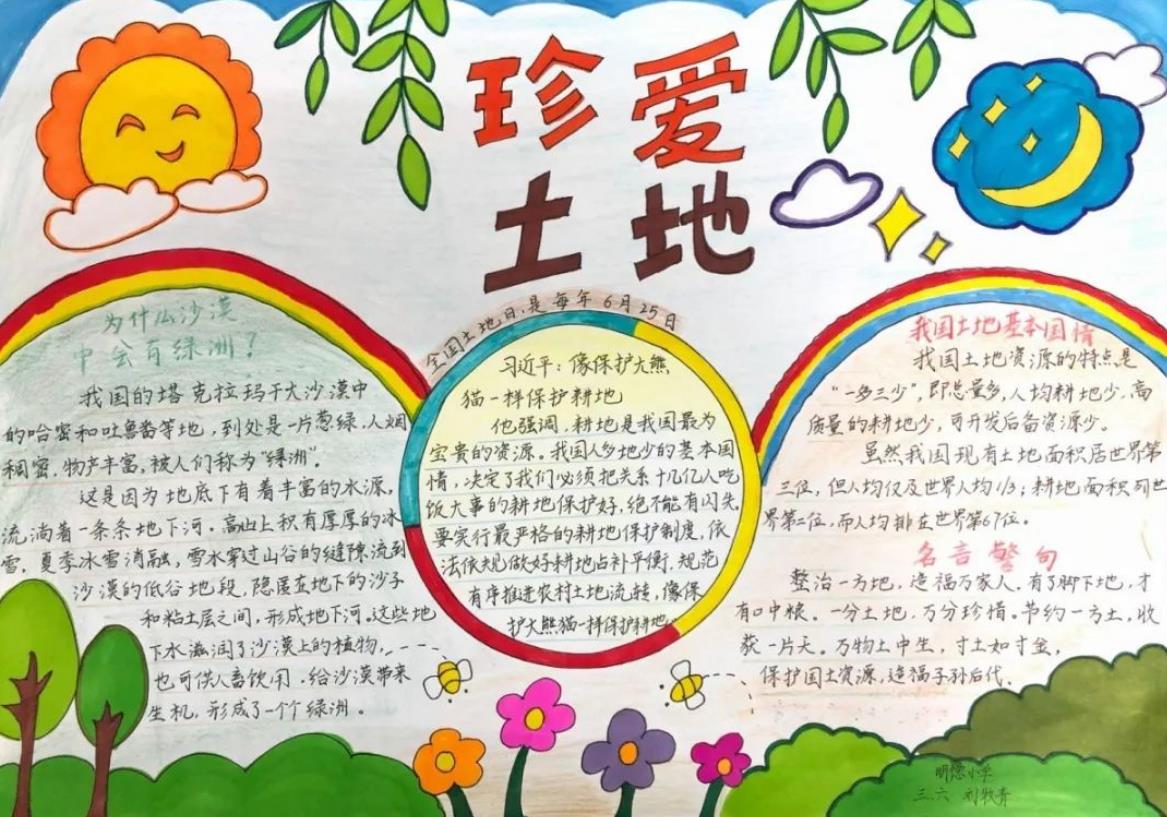 珍爱
土地
为什么沙漠
中会有绿洲？
我国的塔克拉玛干大沙漠中
的哈密和吐鲁番等地，到处是一片葱绿，人烟
稠密，物产丰富，被人们称为“绿洲”。
这是因为地底下有着丰富的水源，
流淌着一条条地下河。高山上积有厚厚的冰
雪，夏季冰雪消融，雪水穿过山谷的缝隙流到
沙漠的低谷地段，隐匿在地下的沙子
和粘土层之间，形成地下河。这些地
下水滋润了沙漠上的植物，
也可供人畜饮用，给沙漠带来
生机，形成了一个个绿洲。
全国土地日，是每年6月25日
习近平：像保护大熊
猫一样保护耕地
他强调，耕地是我国最为
宝贵的资源。我国人多地少的基本国
情，决定了我们必须把关系十几亿人吃
饭大事的耕地保护好，绝不能有闪失。
要实行最严格的耕地保护制度，依
法依规做好耕地占补平衡，规范
有序推进农村土地流转，像保
护大熊猫一样保护耕地。
我国土地基本国情
我国土地资源的特点是
“一多三少”，即总量多，人均耕地少，高
质量的耕地少，可开发后备资源少。
虽然我国现有土地面积居世界第
三位，但人均仅及世界人均1/3；耕地面积列世
界第二位，而人均排在世界第67位。
名言警句
整治一方地，造福万家人。有了脚下地，才
有口中粮。一分土地，万分珍惜。节约一方土，收
获一片天。万物土中生，寸土如寸金，
保护国土资源，造福子孙后代。
明德小学
三.六 刘牧青